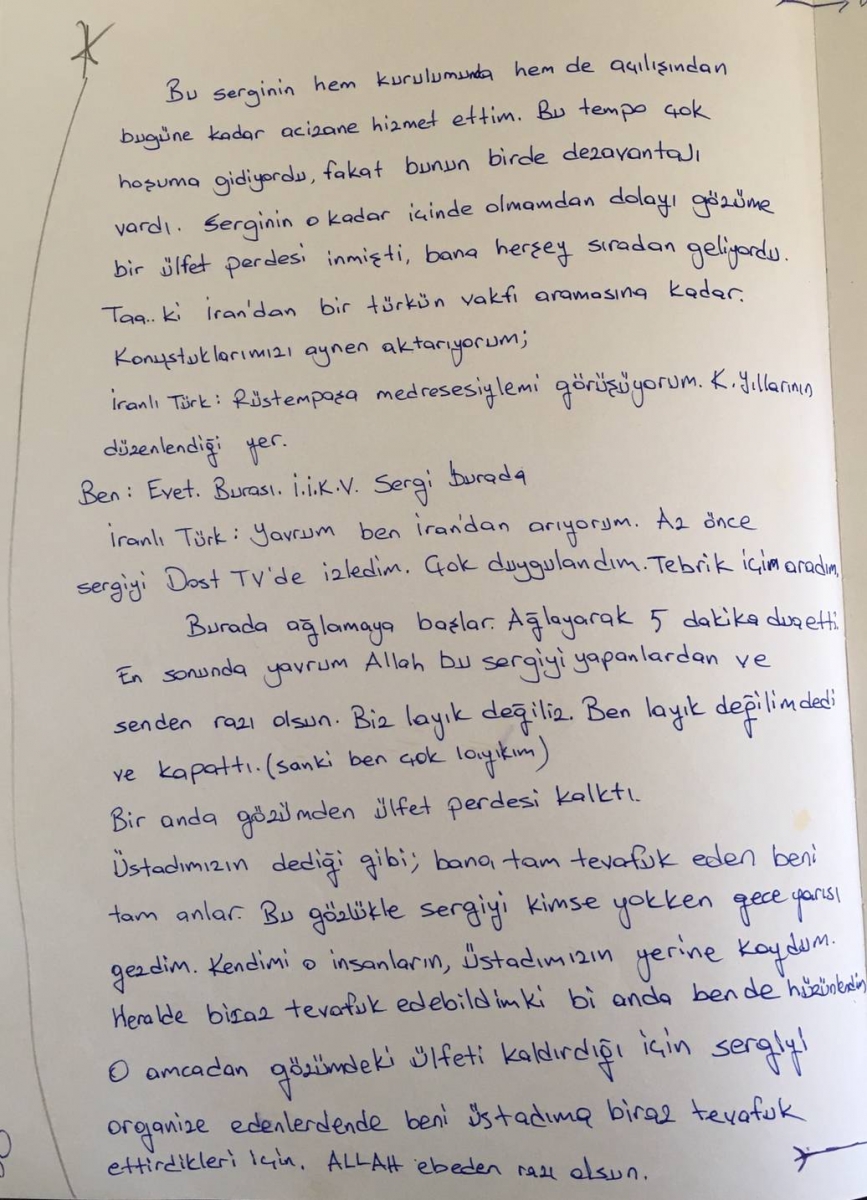 Bu serginin hem kurulumunda hem de açılışından
bugüne kadar acizane hizmet ettim. Bu tempo çok
hoşuma gidiyordu, fakat bunun birde dezavantajı
vardı. Serginin o kadar içinde olmamdan dolayı gözüme
bir ülfet perdesi inmişti, bana herşey sıradan geliyordu.
Taa.. ki İran'dan bir türkün vakfı aramasına kadar.
Konuştuklarımızı aynen aktarıyorum;
İranlı Türk: Rüstempaşa medresesiylemi görüşüyorum. K. Yıllarının
düzenlendiği yer.
Ben: Evet. Burası. İ.İ.K.V. Sergi burada
İranlı Türk: Yavrum ben İran'dan arıyorum. Az önce
sergiyi Dost TV'de izledim. Çok duygulandım. Tebrik için aradım.
Burada ağlamaya başlar. Ağlayarak 5 dakika dua etti.
En sonunda yavrum Allah bu sergiyi yapanlardan ve
senden razı olsun. Biz layık değiliz. Ben layık değilim dedi
ve kapattı. (sanki ben çok layıkım)
Bir anda gözümden ülfet perdesi kalktı.
Üstadımızın dediği gibi; bana tam tevafuk eden beni
tam anlar. Bu gözlükle sergiyi kimse yokken gece yarısı
gezdim. Kendimi o insanların, Üstadımızın yerine koydum.
Heralde biraz tevafuk edebildimki bi anda bende hüzünlendim
O amcadan gözümdeki ülfeti kaldırdığı için sergiyi
organize edenlerdende beni üstadıma biraz tevafuk
ettirdikleri için. ALLAH ebeden razı olsun.